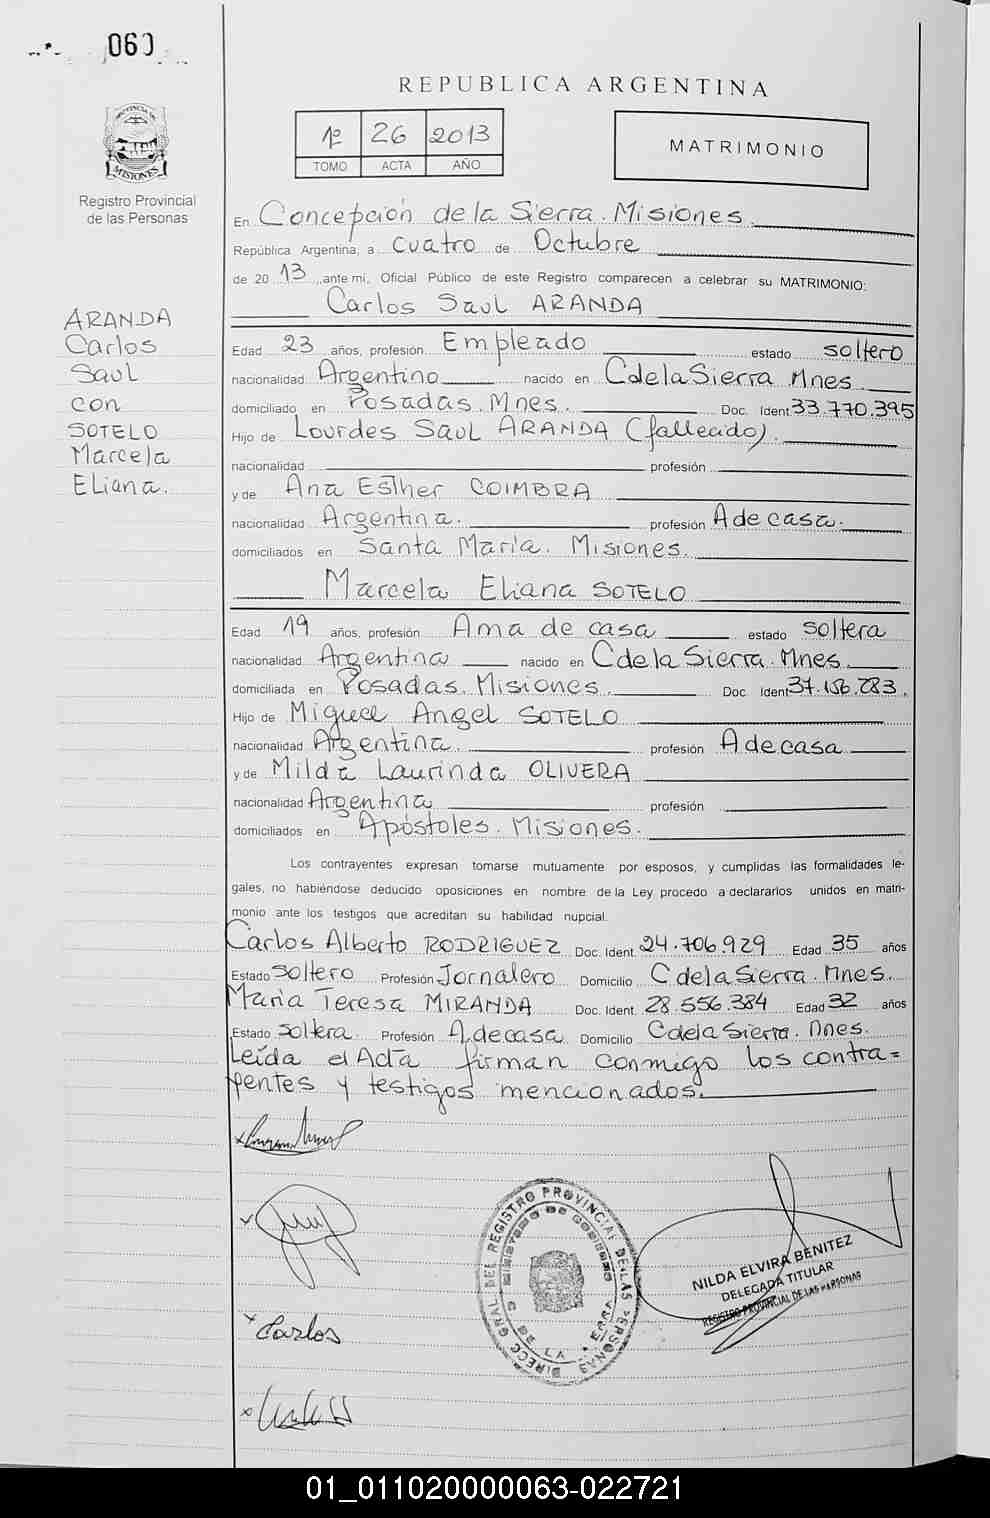 060
REPUBLICA ARGENTINA
1º 26 2013
TOMO ACTA AÑO
MATRIMONIO
PROVINCIA DE
MISIONES
Registro Provincial
de las Personas
En Concepción de la Sierra. Misiones
República Argentina, a cuatro de Octubre
de 2013, ante mi, Oficial Público de este Registro comparecen a celebrar su MATRIMONIO:
Carlos Saul ARANDA
ARANDA
Carlos
Saul
con
SOTELO
Marcela
Eliana.
Edad 23 años, profesión Empleado estado soltero
nacionalidad Argentino nacido en CdelaSierra Mnes.
domiciliado en Posadas. Mnes. Doc. Ident 33.770.395
Hijo de Lourdes Saul ARANDA (fallecido).
nacionalidad profesión
y de Ana Esther COIMBRA
nacionalidad Argentina. profesión A de casa.
domiciliados en Santa María. Misiones.
Marcela Eliana SOTELO
Edad 19 años, profesión Ama de casa estado soltera
nacionalidad Argentina nacido en C de la Sierra. Mnes.
domiciliada en Posadas. Misiones. Doc. Ident 37.156.283.
Hijo de Miguel Angel SOTELO
nacionalidad Argentina. profesión A de casa
y de Milda Laurinda OLIVERA
nacionalidad Argentina profesión
domiciliados en Apóstoles. Misiones.
Los contrayentes expresan tomarse mutuamente por esposos, y cumplidas las formalidades le-
gales, no habiéndose deducido oposiciones en nombre de la Ley procedo a declararlos unidos en matri-
monio ante los testigos que acreditan su habilidad nupcial.
Carlos Alberto RODRIGUEZ Doc. Ident. 24.706.929 Edad 35 años
Estado soltero Profesión Jornalero Domicilio C de la Sierra. Mnes.
Maria Teresa MIRANDA Doc. Ident. 28.556.384 Edad 32 años
Estado soltera. Profesión A. de casa Domicilio C de la Sierra. Mnes.
Leída el Acta firman conmigo los contra=
yentes y testigos mencionados.
Carlos
DIRECC. GRAL DEL REGISTRO PROVINCIAL DE LAS PERSONAS
MINISTERIO DE GOBIERNO
NILDA ELVIRA BENITEZ
DELEGADA TITULAR
REGISTRO PROVINCIAL DE LAS PERSONAS
01_011020000063-022721